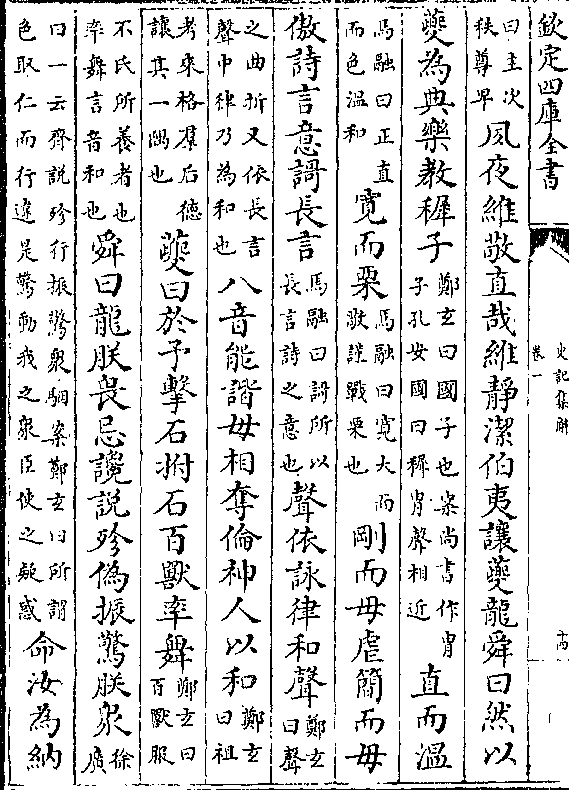 欽定四庫全書
史記集解
卷一
十四
曰主次秩尊卑夙夜維敬直哉維靜潔伯夷讓夔龍舜曰然以
夔為典樂教稺子鄭玄曰國子也案尚書作胄子孔安國曰稺胄聲相近直而溫
馬融曰正直而色溫和寬而栗馬融曰寬大而敬謹戰栗也剛而毋虐簡而毋
傲詩言意謌長言馬融曰謌所以長言詩之意也聲依詠律和聲鄭玄曰聲
之曲折又依長言聲中律乃為和也八音能諧毋相奪倫神人以和鄭玄曰祖
考來格羣后德讓其一隅也夔曰於予擊石拊石百獸率舞鄭玄曰百獸服
不氏所養者也率舞言音和也舜曰龍朕畏忌讒說殄偽振驚朕衆徐廣
曰一云齊說殄行振驚衆駰案鄭玄曰所謂色取仁而行違是驚動我之衆臣使之疑惑命汝為納